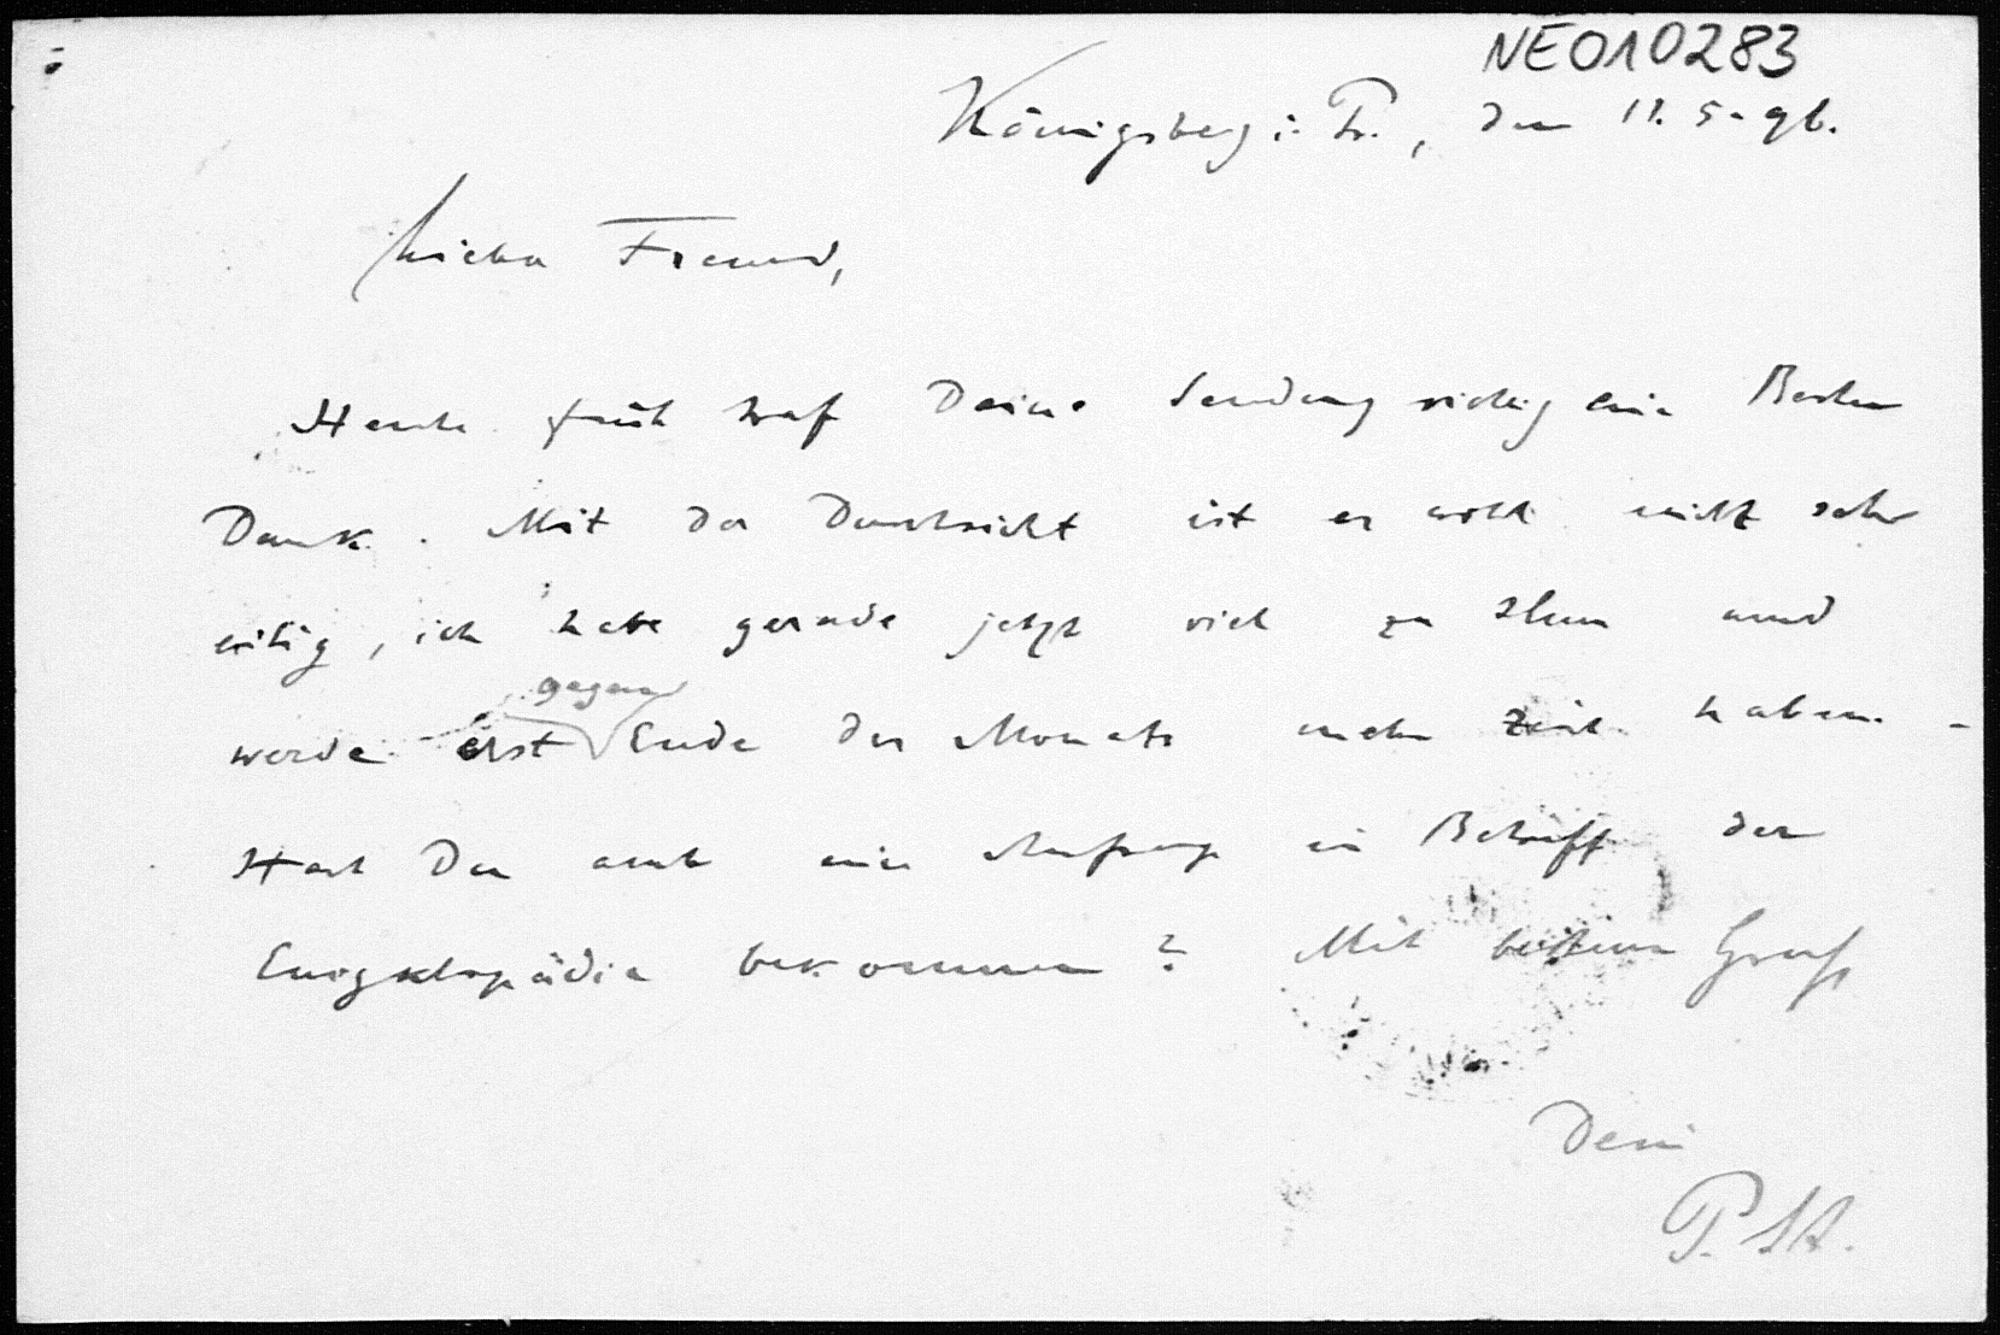 NE010283
Königsberg i. Pr., den 11. 5. 96.
Lieber Freund,
Heute früh traf Deine Sendung richtig ein. Besten
Dank. Mit der Durchsicht ist es wohl nicht sehr
eilig, ich habe gerade jetzt viel zu thun und
gegen
werde erst Ende des Monats mehr Zeit haben. -
Hast Du auch eine Anfrage in Betreff der
Encyklopädie bekommen? Mit bestem Gruß
Dein
P. St.